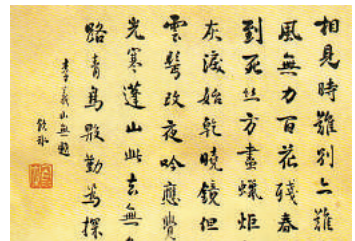 相見時難別亦難
風無力百花殘春
到死絲方盡蠟炬
灰淚始乾曉鏡但
雲鬢改夜吟應覺
光寒蓬山此去無
路青鳥殷勤為探
李義山無題